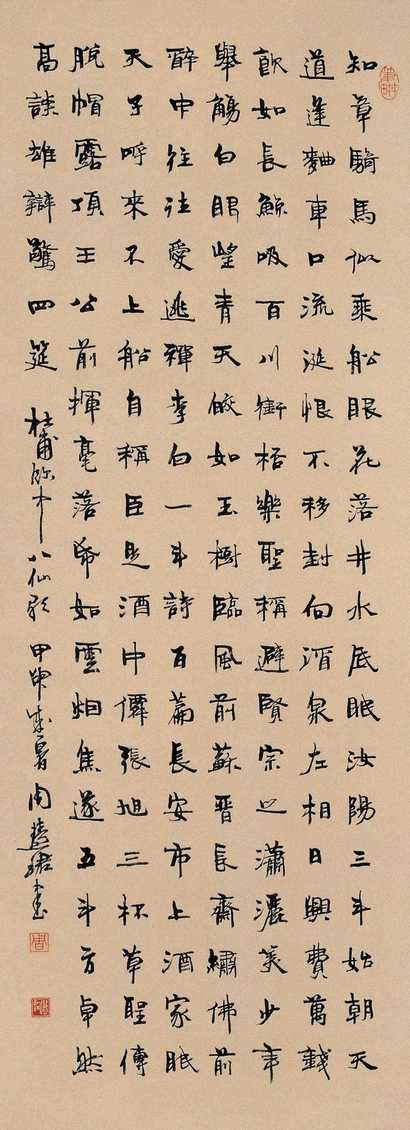 知章騎馬似乘船眼花落井水底眠汝陽三斗始朝天
道逢麯車口流涎恨不移封向酒泉左相日興費萬錢
飲如長鯨吸百川銜桮樂聖稱避賢宗之瀟灑美少年
舉觴白眼望青天皎如玉樹臨風前蘇晉長齋繡佛前
醉中往往愛逃禪李白一斗詩百篇長安市上酒家眠
天子呼來不上船自稱臣是酒中僊張旭三杯草聖傳
脫帽露頂王公前揮毫落帋如雲烟焦遂五斗方卓然
高談雄辯驚四筵 杜甫飲中八仙歌 甲申盛暑周慧珺書